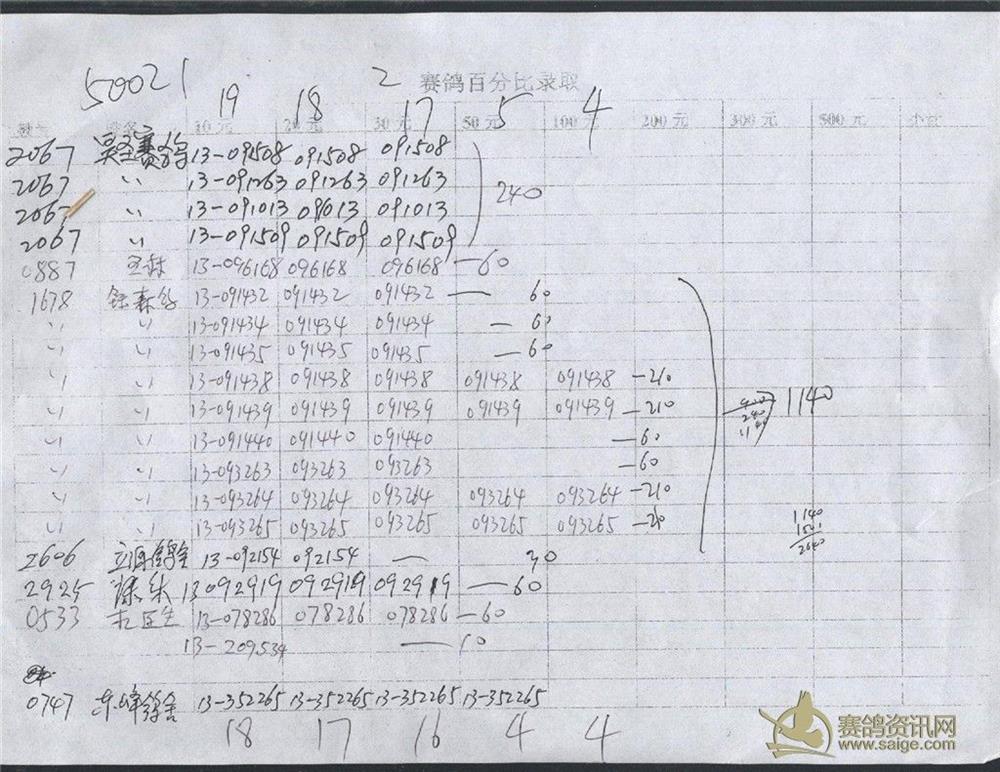 50021 2 赛鸽百分比录取
19 18 17 5 4
10元 20元 30元 50元 100元 200元 300元 500元 小计
2067 赛鸽 13-091508 091508 091508
2067 〃 13-091263 091263 091263 240
2067 〃 13-091013 091013 091013
2067 〃 13-091509 091509 091509
0887 13-096168 096168 096168 —60
1678 13-091432 091432 091432 — 60
〃 〃 13-091434 091434 091434 — 60
〃 〃 13-091435 091435 091435 — 60
〃 〃 13-091438 091438 091438 091438 091438 —210
〃 〃 13-091439 091439 091439 091439 091439 —210 1140
〃 〃 13-091440 091440 091440 —60
〃 〃 13-093263 093263 093263 —60
〃 〃 13-093264 093264 093264 093264 093264 —210
〃 〃 13-093265 093265 093265 093265 093265 —210 1140
2606 13-092154 092154 — 30
2925 13092919 092919 092919 —60
0533 13-078286 078286 078286 —60
13-209534 — 10
0747 13-352265 13-352265 13-352265 13-352265
18 17 16 4 4
赛鸽资讯网
www.saige.com